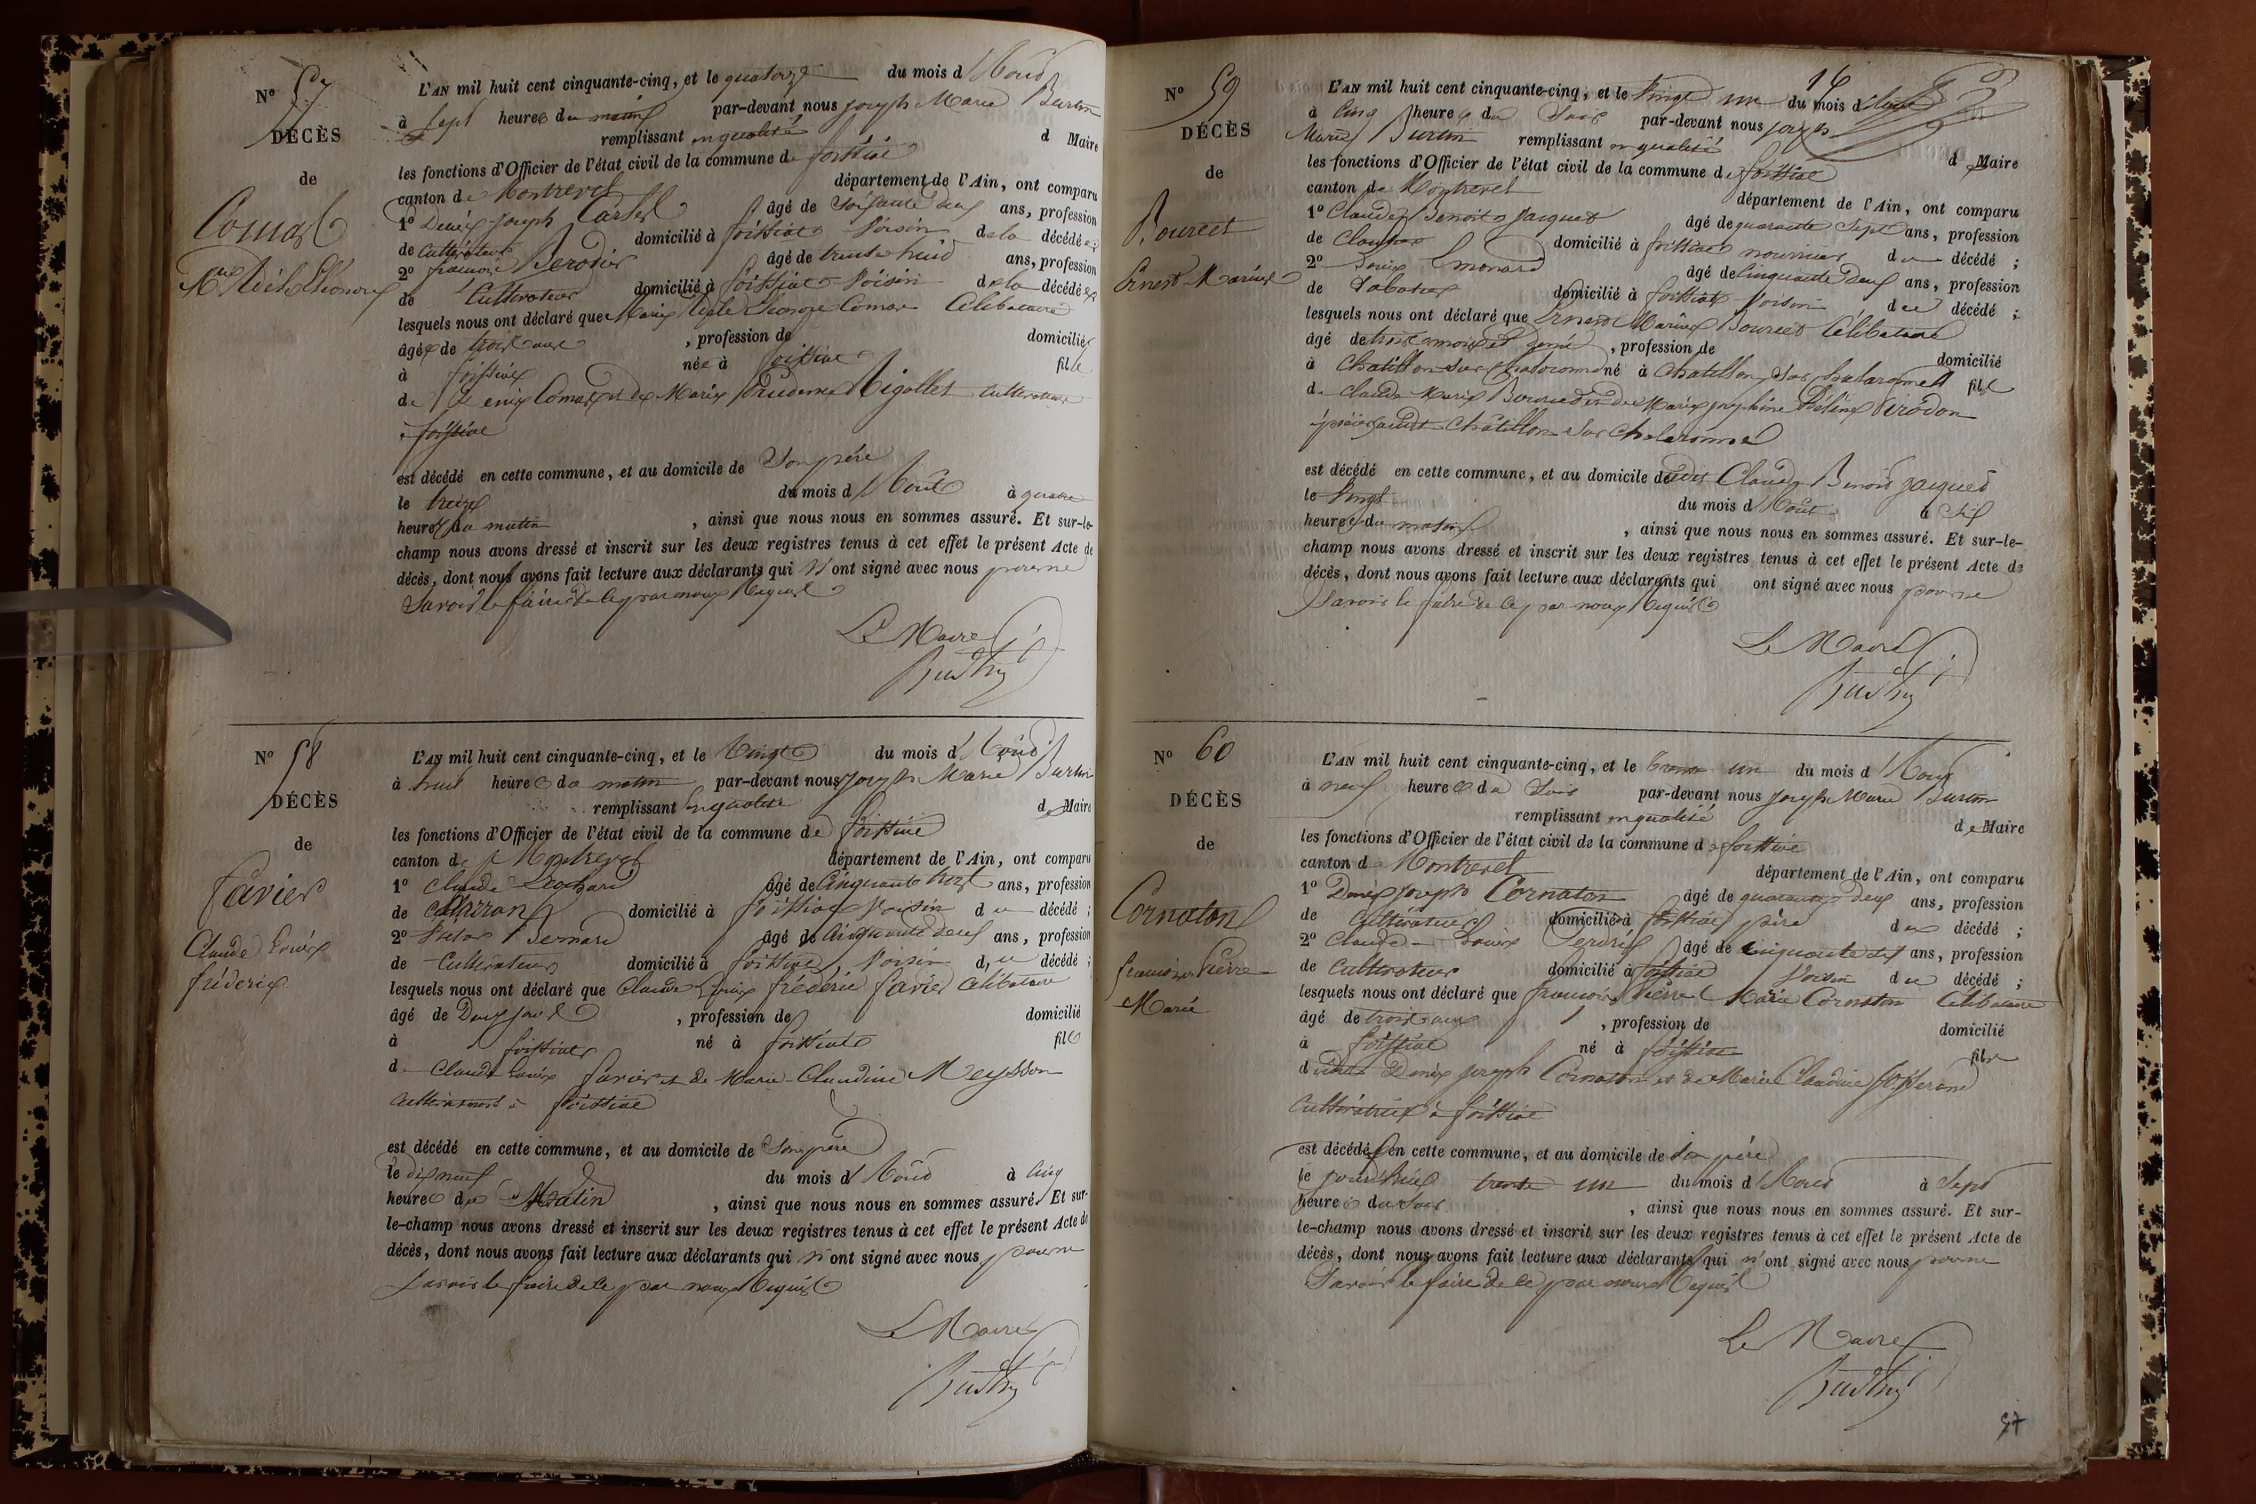 N° 57
DÉCÈS
de
Comas
M.ie Adèle Léonore
L'AN mil huit cent cinquante-cinq, et le quatorze du mois d'Août
à sept heures du matin par-devant nous joseph Marie Burtin
remplissant en qualité de Maire
les fonctions d'Officier de l'état civil de la commune de foissiat
canton de Montrevel département de l'Ain, ont comparu
1° Denis joseph âgé de soixante deux ans, profession
de cultivateur domicilié à foissiat voisin de la décédée;
2° françois Berodier âgé de trente huit ans, profession
de Cultivateur domicilié à foissiat voisin de la décédée
lesquels nous ont déclaré que Marie Adèle Léonore Comas Célibataire
âgée de trois ans , profession de domiciliée
à foissiat née à foissiat fille
de Denis Comas et de Marie Prudence Rigollet cultivateurs
à foissiat
est décédé en cette commune, et au domicile de Son père
le treize du mois d'Août à quatre
heures du matin , ainsi que nous nous en sommes assuré. Et sur-le-
champ nous avons dressé et inscrit sur les deux registres tenus à cet effet le présent Acte de
décès, dont nous avons fait lecture aux déclarants qui n'ont signé avec nous pour ne
savoir le faire de ce par nous Requis
Le Maire
Burtin
N° 58
DÉCÈS
de
favier
Claude Louis
fréderic
L'AN mil huit cent cinquante-cinq, et le vingt du mois d'Août
à huit heures du matin par-devant nous joseph Marie Burtin
remplissant en qualité de Maire
les fonctions d'Officier de l'état civil de la commune de foissiat
canton de Montrevel département de l'Ain, ont comparu
1° Claude âgé de Cinquante trois ans, profession
de domicilié à foissiat voisin du décédé;
2° Bernard âgé de cinquante deux ans, profession
de Cultivateur domicilié à foissiat voisin du décédé;
lesquels nous ont déclaré que Claude Louis fréderic favier Célibataire
âgé de Deux jours , profession de domicilié
à foissiat né à foissiat fils
de Claude Louis favier et de Marie-Claudine Meysson
cultivateurs à foissiat
est décédé en cette commune, et au domicile de Son père
le dix neuf du mois d'Août à cinq
heures du Matin , ainsi que nous nous en sommes assuré. Et sur-
le-champ nous avons dressé et inscrit sur les deux registres tenus à cet effet le présent Acte de
décès, dont nous avons fait lecture aux déclarants qui n'ont signé avec nous pour ne
savoir le faire de ce par nous Requis
Le Maire
Burtin
16
N° 59
DÉCÈS
de
Bourcet
Ernest Marius
L'AN mil huit cent cinquante-cinq, et le Vingt un du mois d'Août
à cinq heures du Soir par-devant nous joseph
Marie Burtin remplissant en qualité de Maire
les fonctions d'Officier de l'état civil de la commune de foissiat
canton de Montrevel département de l'Ain, ont comparu
1° Claude Benoit jacquet âgé de quarante Sept ans, profession
de domicilié à foissiat nourricier du décédé;
2° Denis Emonard âgé de Cinquante Deux ans, profession
de Sabotier domicilié à foissiat voisin du décédé;
lesquels nous ont déclaré que Ernest Marius Bourcet Célibataire
âgé de trois mois et demi , profession de domicilié
à Chatillon sur chalaronne né à Chatillon sur chalaronne fils
de Claude Marie Bourcet et de Marie josephine Pirodon
épiciers audit Châtillon sur Chalaronne
est décédé en cette commune, et au domicile dudit Claude Benoit jacquet
le Vingt du mois d'Août à Six
heures du matin , ainsi que nous nous en sommes assuré. Et sur-le-
champ nous avons dressé et inscrit sur les deux registres tenus à cet effet le présent Acte de
décès, dont nous avons fait lecture aux déclarants qui ont signé avec nous pour ne
Savoir le faire de ce par nous Requis
Le Maire
Burtin
N° 60
DÉCÈS
de
Cornaton
françois Pierre
Marie
L'AN mil huit cent cinquante-cinq, et le trente un du mois d'Août
à neuf heures du Soir par-devant nous joseph Marie Burtin
remplissant en qualité de Maire
les fonctions d'Officier de l'état civil de la commune de foissiat
canton de Montrevel département de l'Ain, ont comparu
1° Denis joseph Cornaton âgé de quarante deux ans, profession
de cultivateur domicilié à foissiat père du décédé;
2° Claude-Louis âgé de cinquante six ans, profession
de cultivateur domicilié à foissiat voisin du décédé;
lesquels nous ont déclaré que françois Pierre Marie Cornaton Célibataire
âgé de trois ans , profession de domicilié
à foissiat né à foissiat fils
dudit Denis joseph Cornaton et de Marie Claudine
Cultivateurs à foissiat
est décédé en cette commune, et au domicile de son père
le jourd'hui trente un du mois d'Août à Sept
heures du Soir , ainsi que nous nous en sommes assuré. Et sur-
le-champ nous avons dressé et inscrit sur les deux registres tenus à cet effet le présent Acte de
décès, dont nous avons fait lecture aux déclarants qui n'ont signé avec nous pour ne
Savoir le faire de ce par nous Requis
Le Maire
Burtin
57